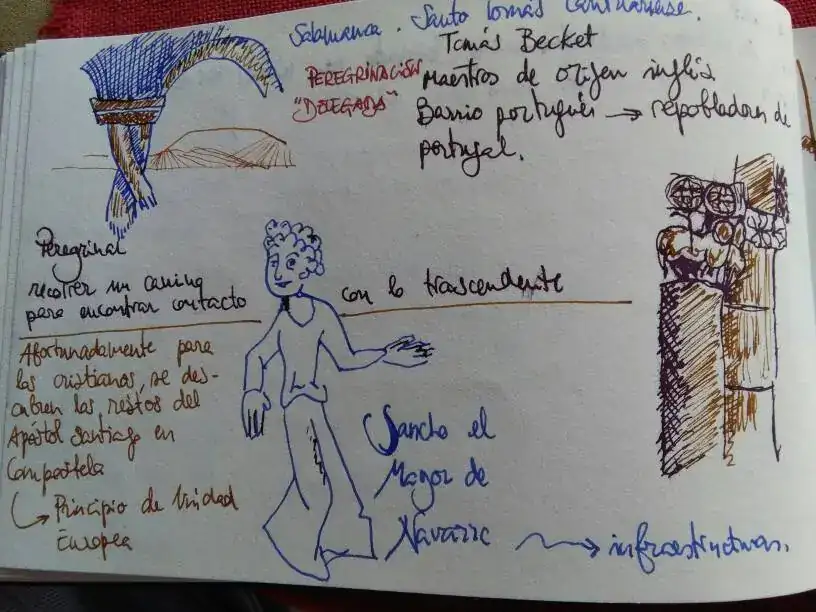 Salamanca. Santo Tomás Cantuariense.
Tomás Becket
PEREGRINACIÓN
"DELEGADA"
Maestros de origen inglés
Barrio portugués → repobladores de
portugal.
Peregrinar
recorrer un camino
para encontrar contacto
con lo trascendente
Afortunadamente para
los cristianos, se des-
cubren los restos del
Apóstol Santiago en
Compostela
↳ Principio de Unidad
Europea
Sancho el
Mayor de
Navarra → infraestructuras.